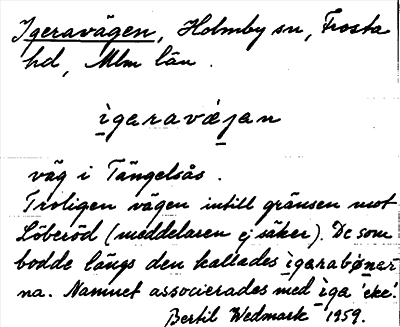 Igeravägen, Holmby sn, Frosta
hd, Mlm län.
ìgaravǽjan
väg i Tängelsås.
Troligen vägen intill gränsen mot
Löberöd (meddelaren ej säker). De som
bodde längs den kallades igarabønər
na. Namnet associerades med ìga 'eke'.
Bertil Wedmark 1959.